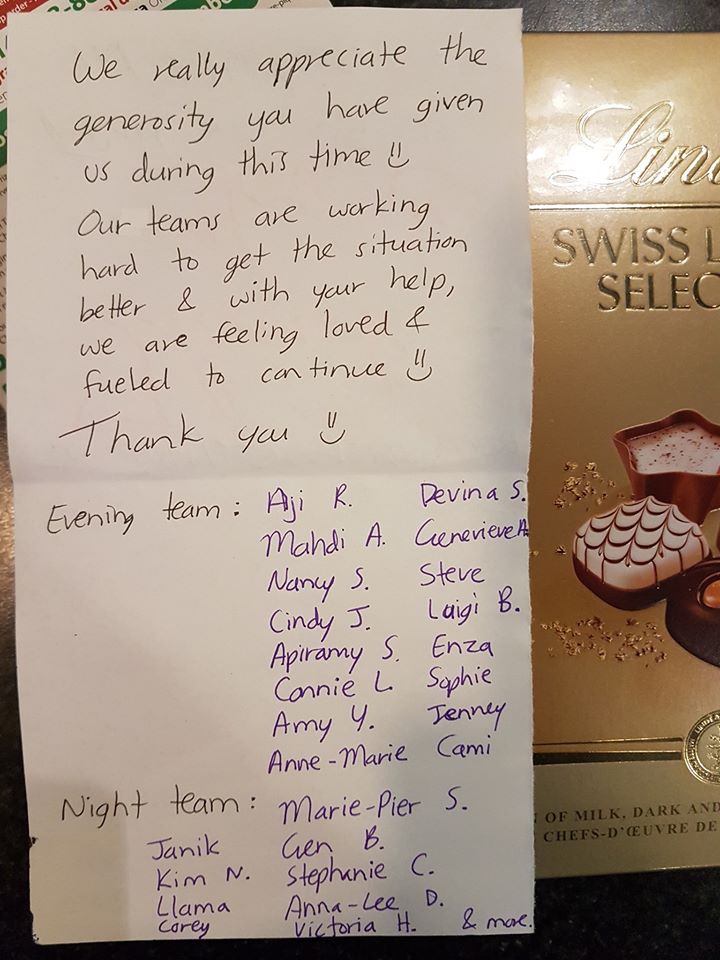 We really appreciate the
generosity you have given
us during this time
Our teams are working
hard to get the situation
better & with your help,
we are feeling loved &
fueled to continue
Thank you
Evening team: Aji R. Devina S.
Mahdi A. Genevieve A.
Nancy S. Steve
Cindy J. Luigi B.
Apiramy S. Enza
Connie L. Sophie
Amy Y. Jenney
Anne-Marie Cami
Night team: Marie-Pier S.
Janik Gen B.
Kim N. Stephanie C.
Llama Anna-Lee D.
Corey Victoria H. & more.
Lin
SWISS L
SELEC
OF MILK, DARK AND
CHEFS-D'ŒUVRE DE